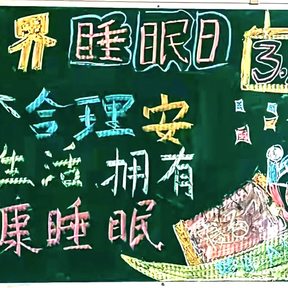 界睡眠日
3.
合理安
生活 拥有
康睡眠